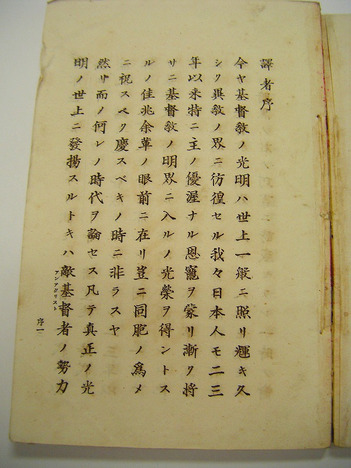 譯者序
今ヤ基督教ノ光明ハ世上一般ニ照リ輝キ久
シク異教ノ界ニ彷徨セル我々日本人モ二三
年以来特ニ主ノ優渥ナル恩寵ヲ蒙リ漸ク將
サニ基督教ノ明界ニ入ルノ光榮ヲ得ントス
ルノ佳兆余輩ノ眼前ニ在リ豈ニ同胞ノ爲メ
ニ祝スベク慶スベキノ時ニ非ラスヤ
然リ而ノ何レノ時代ヲ論セス凡テ真正ノ光
明ノ世上ニ發揚スルトキハ敵基督者ノ勢力
アンチクリスト
序一